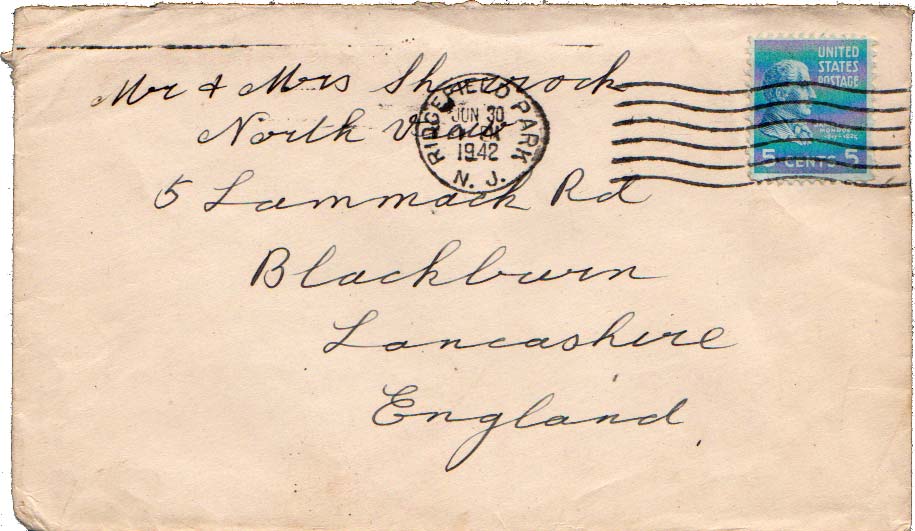 Mr & Mrs Sharrock
North View
5 Lammack Rd
Blackburn
Lancashire
England
RIDGEFIELD PARK
JUN 30
1942
N. J.
UNITED
STATES
POSTAGE
JAMES
MONROE
5 CENTS 5